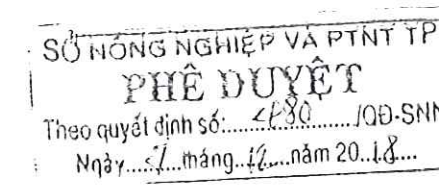 SỞ NÔNG NGHIỆP VÀ PTNT TP
PHÊ DUYỆT
Theo quyết định số:...........80........../QĐ-SNN
Ngày.........tháng..12....năm 20..18....